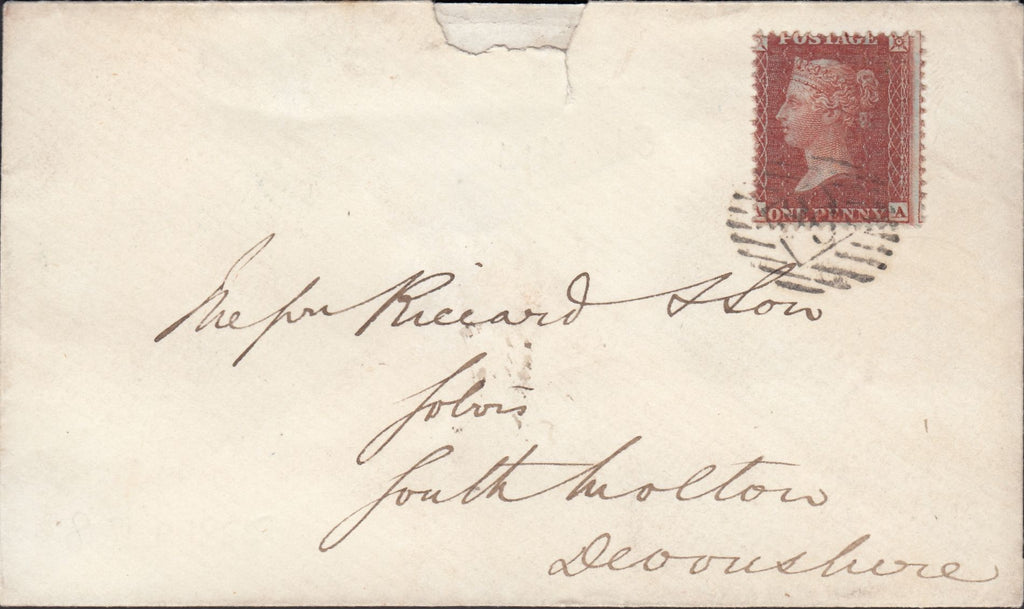 POSTAGE
ONE PENNY
A
Messrs Riccard & Son
Solrs
South Molton
Devonshire